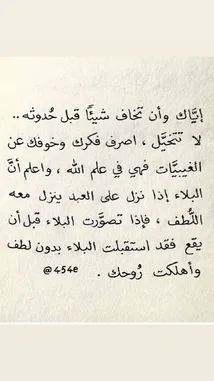 إيَّاك وأن تخاف شيئًا قبل حُدوثه ..
لا تتخيَّل ، اصرف فكرك وخوفك عن
الغيبيَّات فهي في علم الله ، واعلم أنَّ
البلاء إذا نزل على العبد ينزل معه
اللُّطف ، فإذا تصوَّرت البلاء قبل أن
يقع فقد استقبلت البلاء بدون لطف
وأهلكت رُوحك . @454e